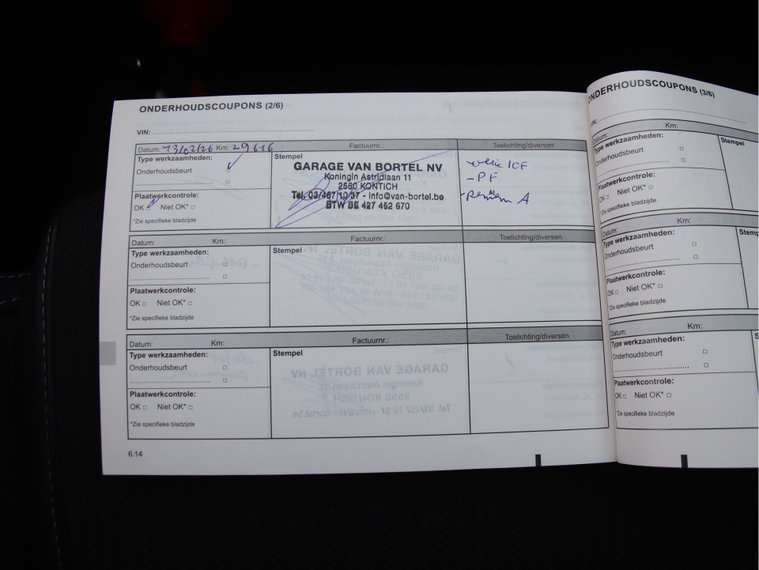 ONDERHOUDSCOUPONS (2/6)
VIN:
Datum: 13/02/26 Km: 29616 Factuurnr.: Toelichting/diversen
Type werkzaamheden:
Onderhoudsbeurt
Plaatwerkcontrole:
OK Niet OK*
*Zie specifieke bladzijde
Stempel
GARAGE VAN BORTEL NV
Koningin Astridlaan 11
2550 KONTICH
Tel. 03/457 10 37 - info@van-bortel.be
- PF
Datum: Km: Factuurnr.: Toelichting/diversen
Type werkzaamheden:
Onderhoudsbeurt
Plaatwerkcontrole:
OK Niet OK*
*Zie specifieke bladzijde
Stempel
Datum: Km: Factuurnr.: Toelichting/diversen
Type werkzaamheden:
Onderhoudsbeurt
Plaatwerkcontrole:
OK Niet OK*
*Zie specifieke bladzijde
Stempel
6.14
ONDERHOUDSCOUPONS (3/6)
VIN:
Datum: Km:
Type werkzaamheden:
Onderhoudsbeurt
Plaatwerkcontrole:
OK Niet OK*
*Zie specifieke bladzijde
Stempel
Datum: Km:
Type werkzaamheden:
Onderhoudsbeurt
Plaatwerkcontrole:
OK Niet OK*
*Zie specifieke bladzijde
Datum: Km:
Type werkzaamheden:
Onderhoudsbeurt
Plaatwerkcontrole:
OK Niet OK*
*Zie specifieke bladzijde